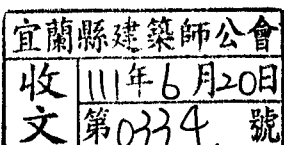 宜蘭縣建築師公會
收文
111年6月20日
第0334號